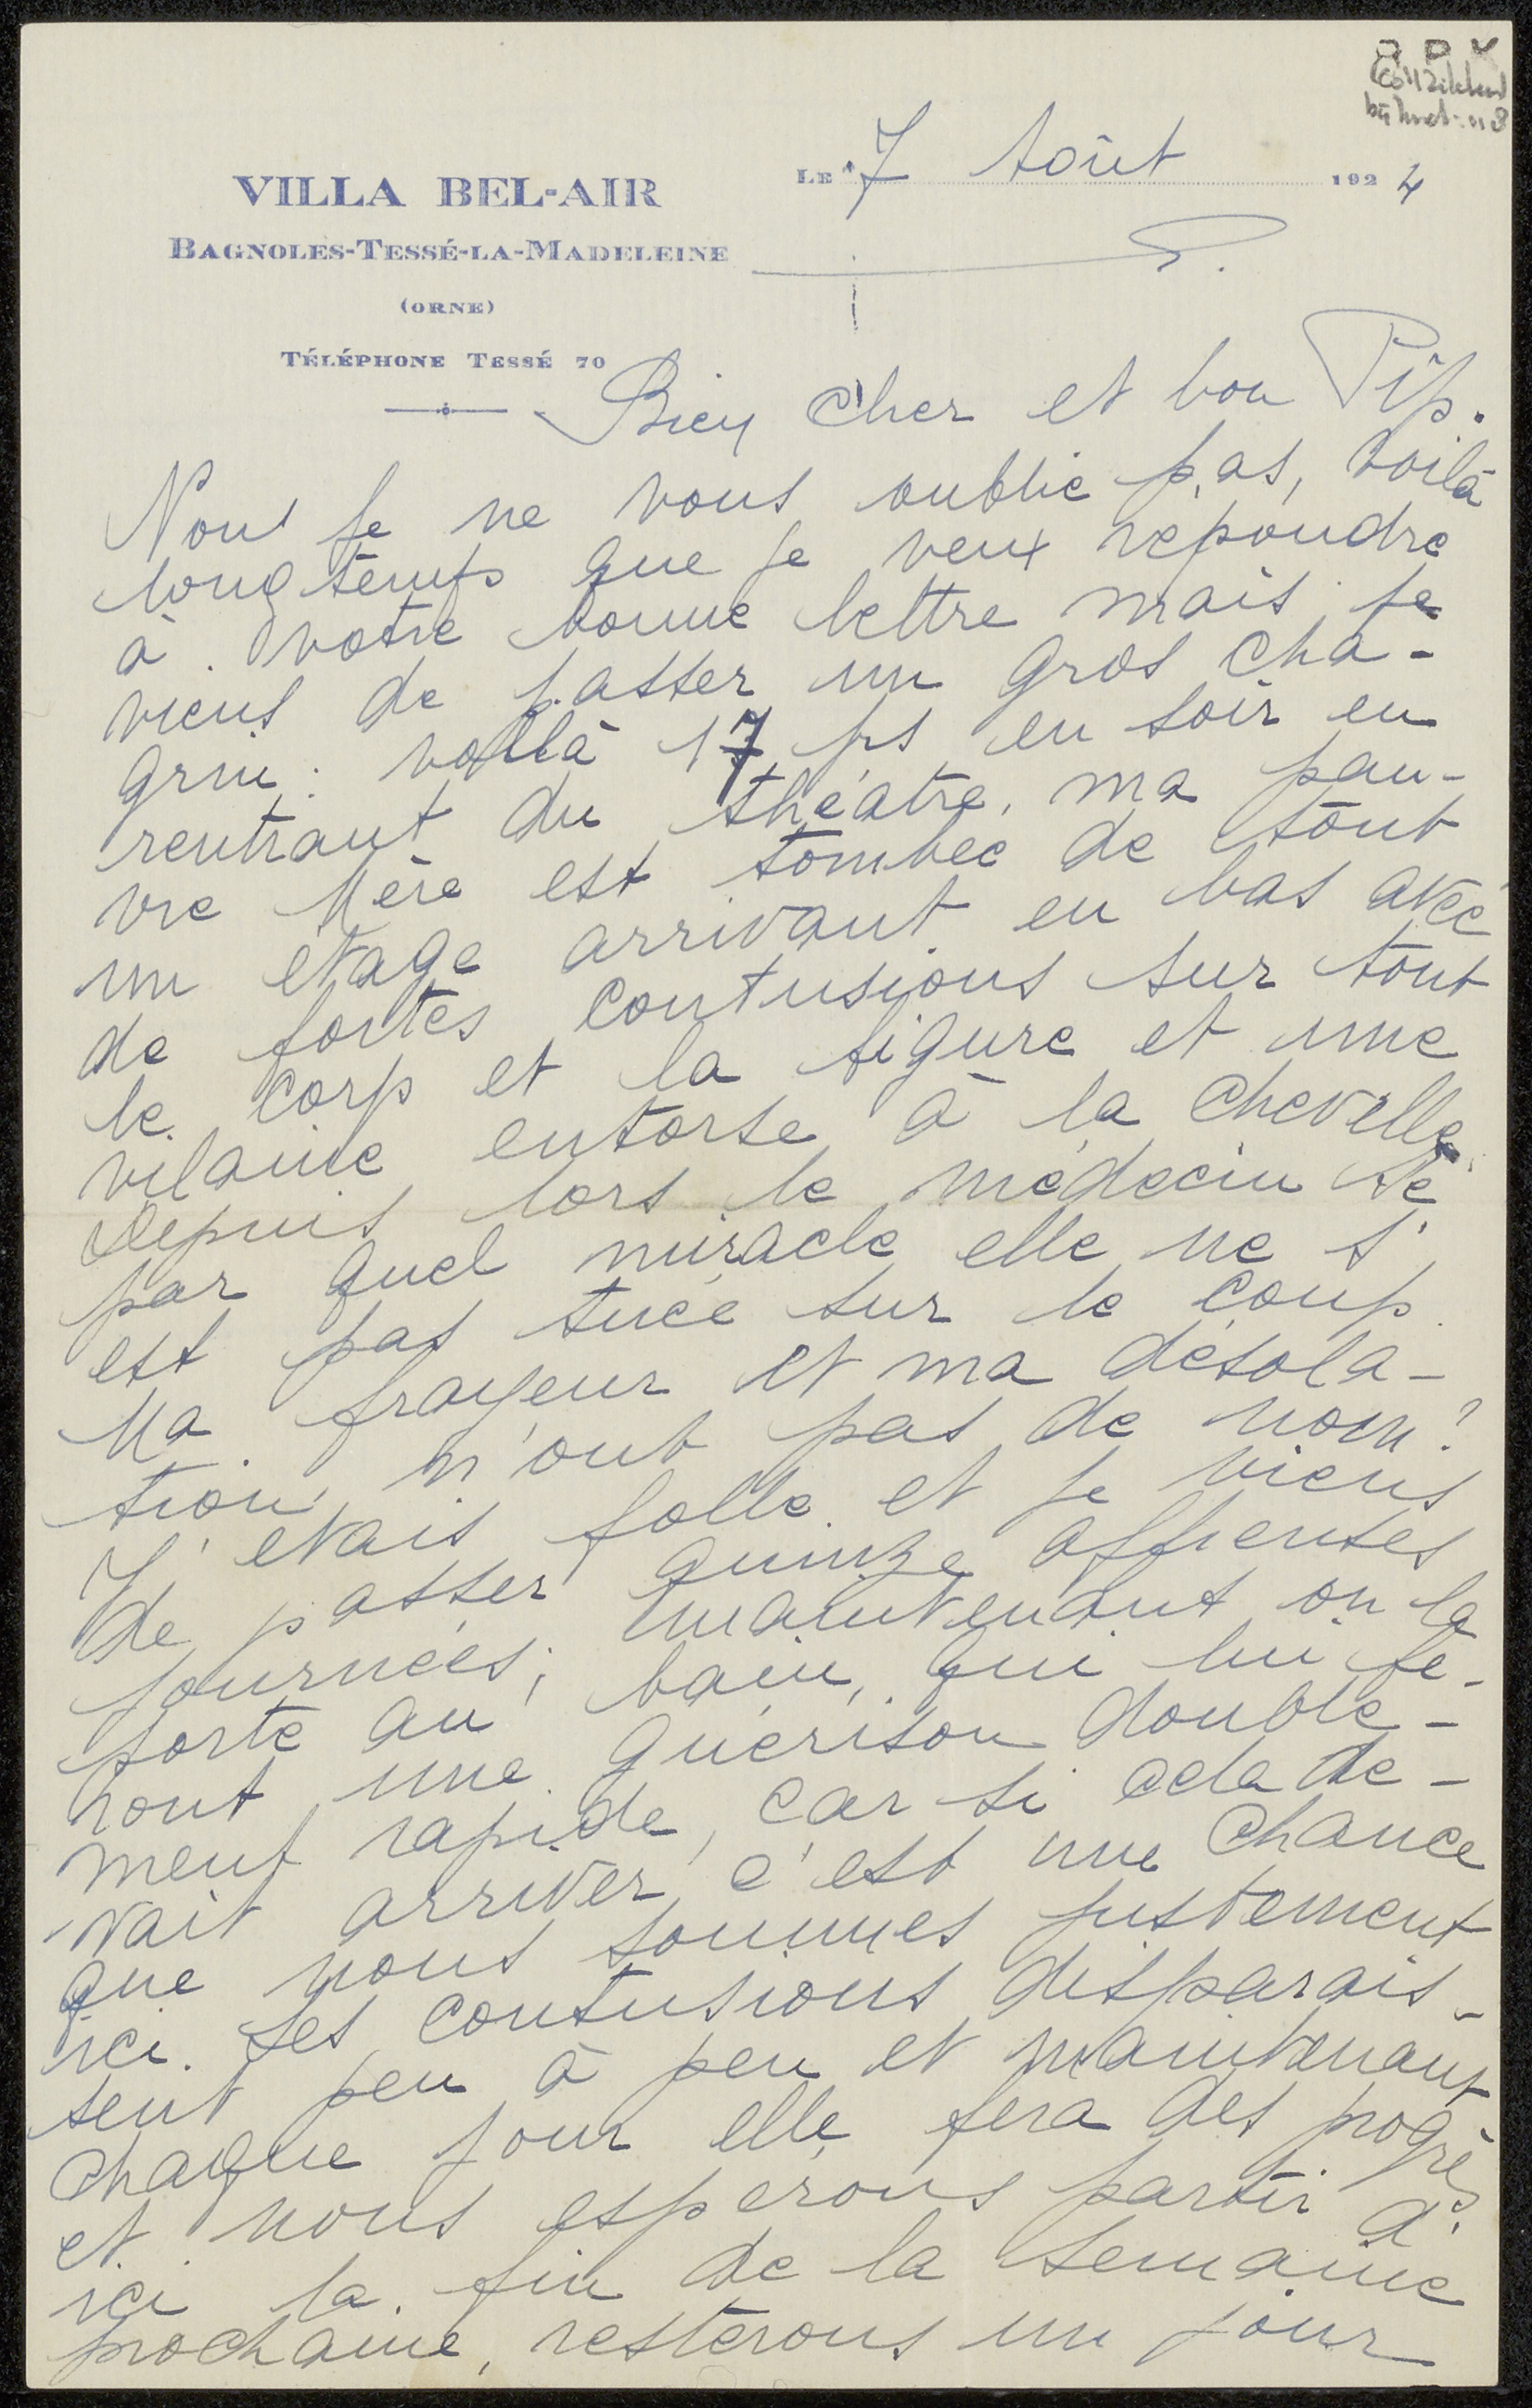 LE 7 Août 1924
VILLA BEL-AIR
BAGNOLES-TESSÉ-LA-MADELEINE
(ORNE)
TÉLÉPHONE TESSÉ 70
Bien cher et bon Pip.
Non je ne vous oublie pas, voilà
longtemps que je veux répondre
à votre bonne lettre mais je
viens de passer un gros cha-
grin : voilà 17 jrs en soir en
rentrant du théâtre, ma pau-
vre Mère est tombée de tout
un étage arrivant en bas avec
de fortes contusions sur tout
le corp et la figure et une
vilaine entorse à la cheville.
Depuis lors le médecin
par quel miracle elle ne s'
est pas tuée sur le coup.
Ma frayeur et ma désola-
tion n'ont pas de nom!
J'étais folle et je viens
de passer quinze affreuses
journées; maintenant on la
porte au bain, qui lui fe-
ront une guérison double-
ment rapide, car si cela de-
vait arriver c'est une chance
que nous sommes justement
ici. Les contusions disparais-
sent peu à peu et maintenant
chaque jour elle fera des progrès
et nous espérons partir d'
ici la fin de la semaine
prochaine, resterons un jour